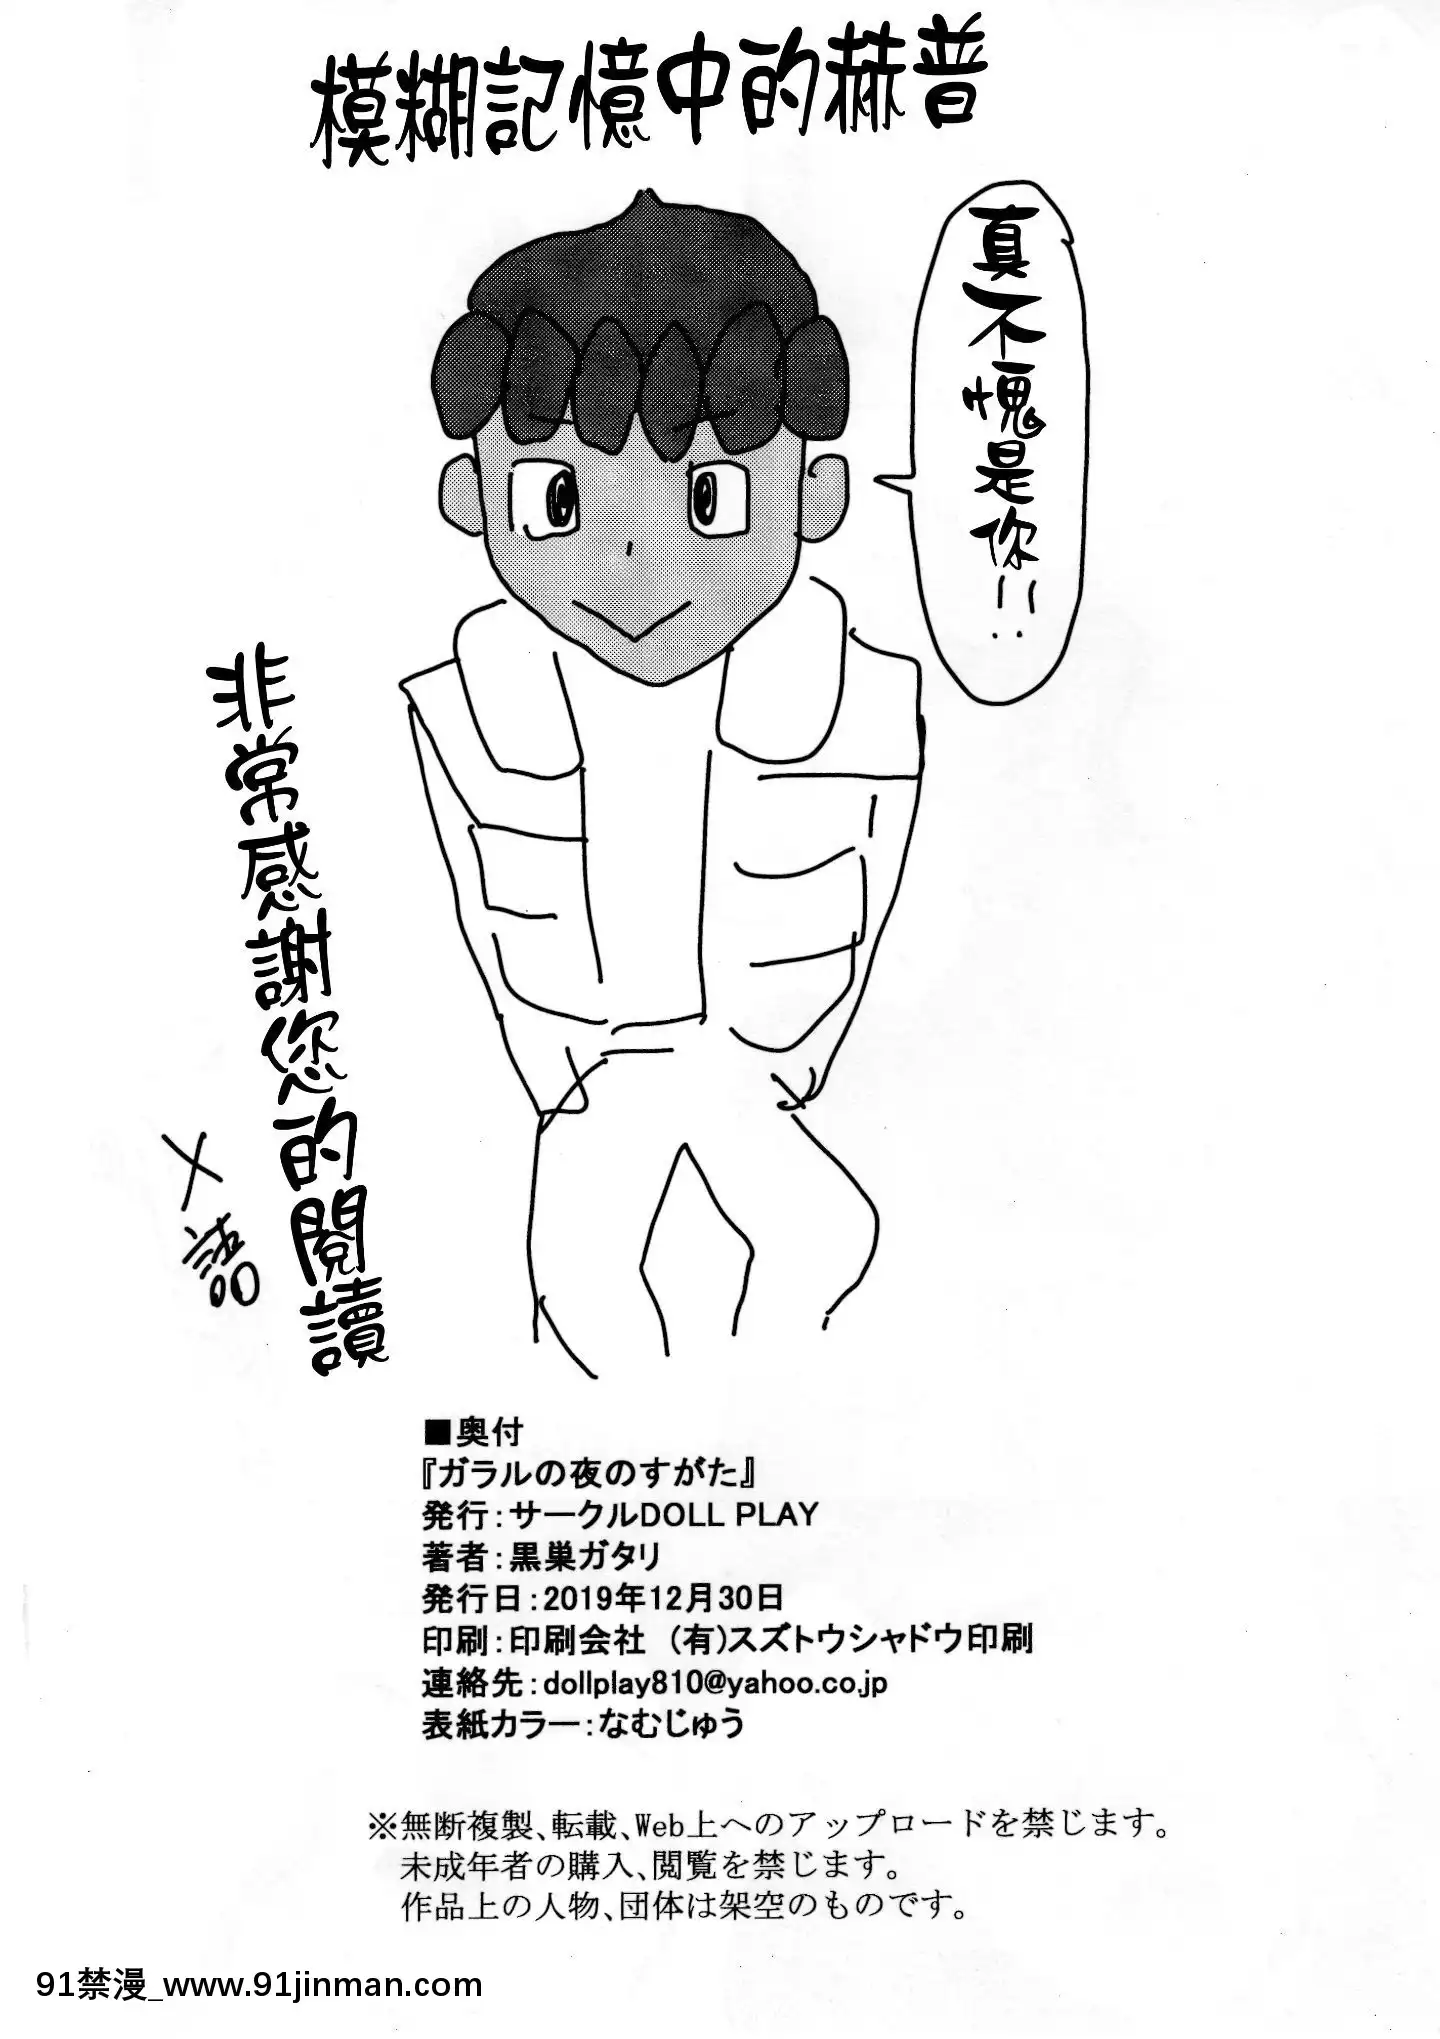 模糊記憶中的赫普
真不愧是你!!
非常感謝您的閱讀
■奥付
『ガラルの夜のすがた』
発行：サークルDOLL PLAY
著者：黒巣ガタリ
発行日：2019年12月30日
印刷：印刷会社　(有)スズトウシャドウ印刷
連絡先：dollplay810@yahoo.co.jp
表紙カラー：なむじゅう
※無断複製、転載、Web上へのアップロードを禁じます。
未成年者の購入、閲覧を禁じます。
作品上の人物、団体は架空のものです。
91禁漫_www.91jinman.com